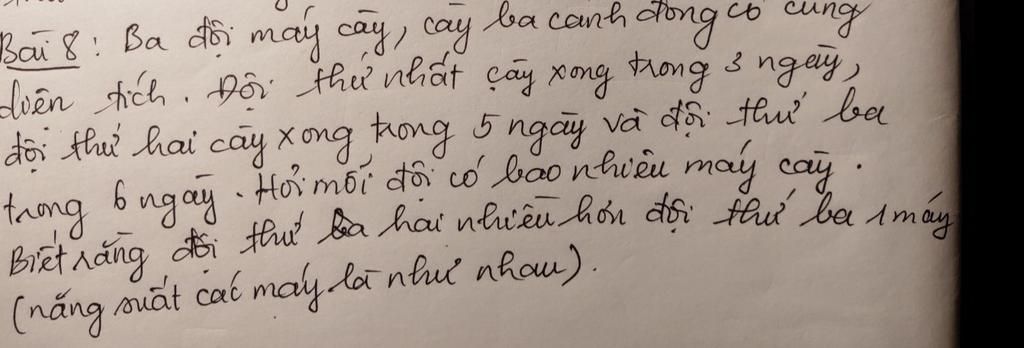 Bài 8: Ba đội máy cày, cày ba cánh đồng có cùng
diện tích. Đội thứ nhất cày xong trong 3 ngày,
đội thứ hai cày xong trong 5 ngày và đội thứ ba
trong 6 ngày. Hỏi mỗi đội có bao nhiêu máy cày.
Biết rằng đội thứ hai nhiều hơn đội thứ ba 1 máy
(năng suất các máy là như nhau).